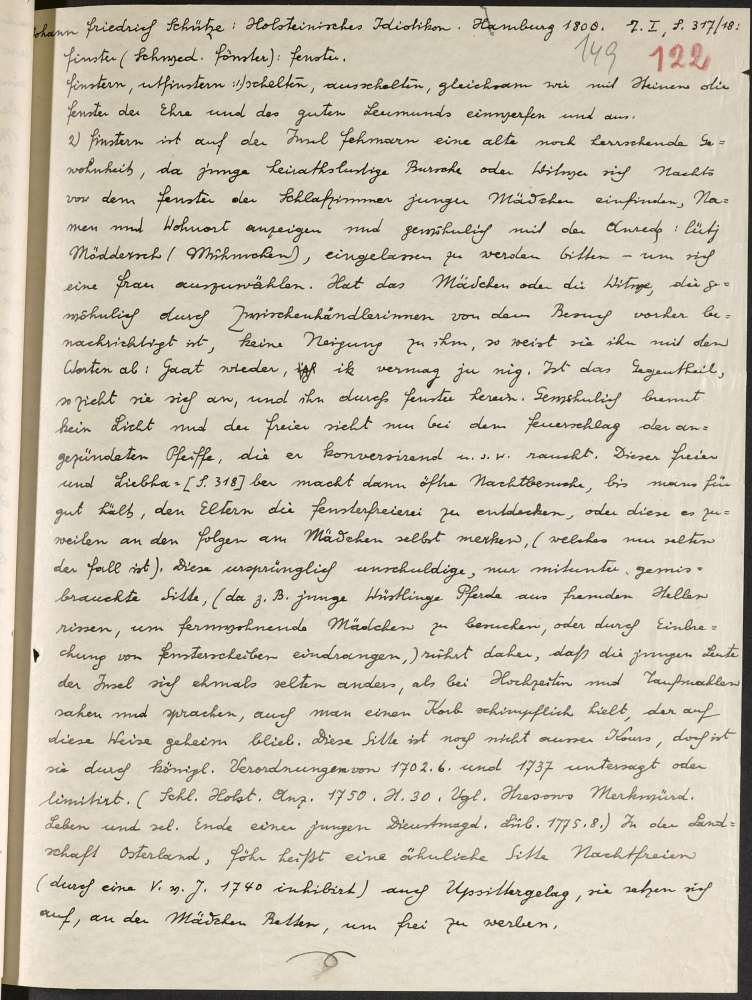 Johann Friedrich Schütze: Holsteinisches Idiotikon. Hamburg 1800. T. I, S. 317/18:
149 122
Finster (Schwed. Fönster): Fenster.
Finstern, utfinstern 1) schelten, ausschelten, gleichsam wie mit Steinen die
Fenster der Ehre und des guten Leumunds einwerfen und aus.
2) finstern ist auf der Insel Fehmarn eine alte noch herrschende Ge=
wohnheit, da junge heirathslustige Bursche oder Witwer sich Nachts
vor dem Fenster der Schlafzimmer junger Mädchen einfinden, Na=
men und Wohnort anzeigen und gewöhnlich mit der Anrede: lütj
Möddersch (Mühmchen), eingelassen zu werden bitten – um sich
eine Frau auszuwählen. Hat das Mädchen oder die Witwe, die ge=
wöhnlich durch Zwischenhändlerinnen von dem Besuch vorher be=
nachrichtigt ist, keine Neigung zu ihm, so weist sie ihn mit den
Worten ab: Gaat wieder, ik vermag ju nig. Ist das Gegentheil,
so zieht sie sich an, und ihn durchs Fenster herein. Gewöhnlich brennt
kein Licht und der Freier sieht nur bei dem Feuerschlag der an=
gezündeten Pfeiffe, die er konversirend u. s. w. raucht. Dieser Freier
und Liebha=[S. 318]ber macht dann öftre Nachtbesuche, bis mans für
gut hält, den Eltern die Fensterfreierei zu entdecken, oder diese es zu=
weilen an den Folgen am Mädchen selbst merken, (welches nur selten
der Fall ist). Diese ursprünglich unschuldige, nur mitunter gemis=
brauchte Sitte, (da z. B. junge Wüstlinge Pferde aus fremden Ställen
rissen, um fernwohnende Mädchen zu besuchen, oder durch Einbre=
chung von Fensterscheiben eindrangen,) rührt daher, daß die jungen Leute
der Insel sich ehmals selten anders, als bei Hochzeiten und Taufmahlen
sahen und sprachen, auch man einen Korb schimpflich hielt, der auf
diese Weise geheim blieb. Diese Sitte ist noch nicht ausser Kours, doch ist
sie durch königl. Verordnungen von 1702. 6. und 1737 untersagt oder
limitirt. (Schl. Holst. Anz. 1750. St. 30. Vgl. Hresows Merkwürd.
Leben und sel. Ende einer jungen Dienstmagd. Lüb. 1775. 8.) In der Land=
schaft Osterland, Föhr heißt eine ähnliche Sitte Nachtfreien
(durch eine V. v. J. 1740 inhibirt) auch Upsittergelag, sie setzen sich
auf, an der Mädchen Betten, um frei zu werben.